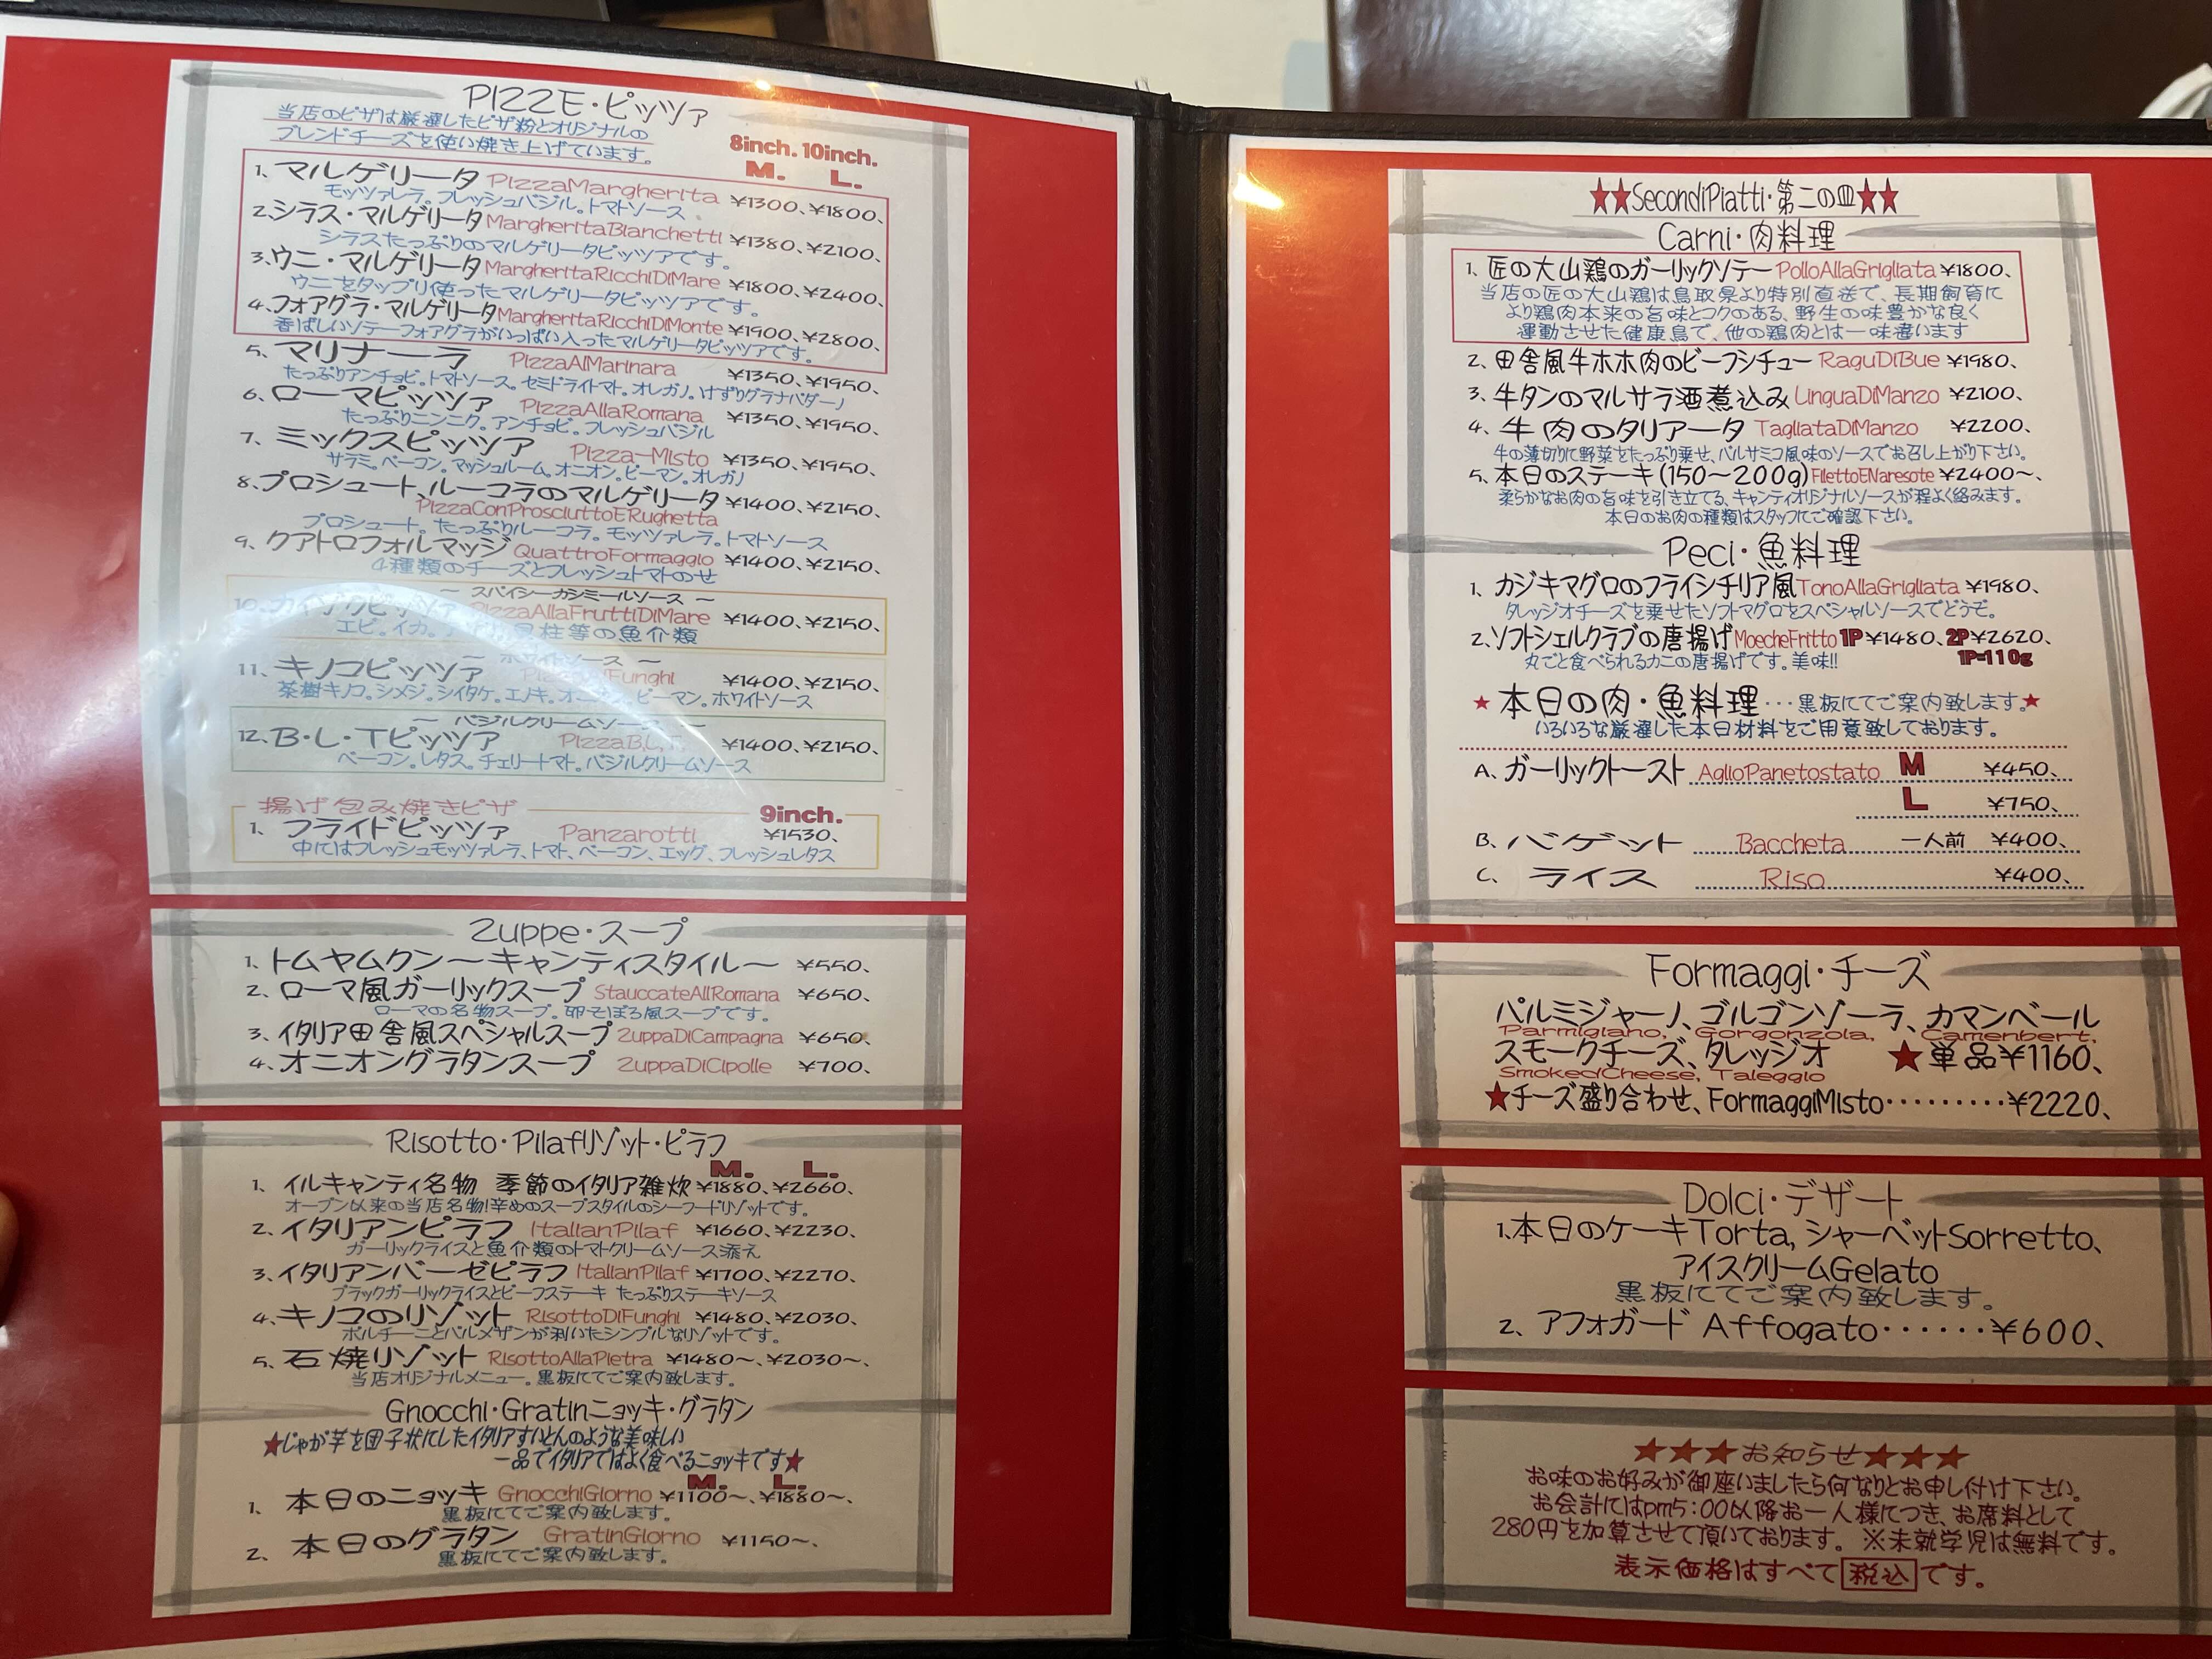 PIZZE・ピッツァ
当店のピザは厳選したピザ粉とオリジナルの
ブレンドチーズを使い焼き上げています。
8inch. 10inch.
M. L.
1. マルゲリータ PizzaMargherita ¥1300、¥1800、
モッツァレラ。フレッシュバジル。トマトソース
2.シラス・マルゲリータ MargheritaBianchetti ¥1380、¥2100、
シラスたっぷりのマルゲリータピッツアです。
3.ウニ・マルゲリータ MargheritaRicchiDiMare ¥1800、¥2400、
ウニをタップリ使ったマルゲリータピッツアです。
4.フォアグラ・マルゲリータ MargheritaRicchiDiMonte ¥1900、¥2800、
香ばしいソテーフォアグラがいっぱい入ったマルゲリータピッツアです。
5. マリナーラ PizzaAlMarinara ¥1350、¥1950、
たっぷりアンチョビ。トマトソース。セミドライトマト。オレガノ。けずりグラナパダーノ
6. ローマピッツァ PizzaAllaRomana ¥1350、¥1950、
たっぷりニンニク。アンチョビ。フレッシュバジル
7. ミックスピッツァ Pizza-Misto ¥1350、¥1950、
サラミ。ベーコン。マッシュルーム。オニオン。ピーマン。オレガノ
8.プロシュート、ルーコラのマルゲリータ ¥1400、¥2150、
PizzaConProsciuttoERughetta
プロシュート。たっぷりルーコラ。モッツァレラ。トマトソース
9. クアトロフォルマッジ QuattroFormaggio ¥1400、¥2150、
4種類のチーズとフレッシュトマトのせ
～ スパイシーカシミールソース ～
10.カイゾクピッツァ PizzaAllaFruttiDiMare ¥1400、¥2150、
エビ。イカ。 貝柱等の魚介類
～ ホワイトソース ～
11. キノコピッツァ Funghi ¥1400、¥2150、
茶樹キノコ。シメジ。シイタケ。エノキ。オニオン。ピーマン。ホワイトソース
～ バジルクリームソース ～
12.B・L・Tピッツァ PizzaB.L.T. ¥1400、¥2150、
ベーコン。レタス。チェリートマト。バジルクリームソース
揚げ包み焼きピザ 9inch.
1. フライドピッツァ Panzarotti ¥1530、
中にはフレッシュモッツァレラ、トマト、ベーコン、エッグ、フレッシュレタス
Zuppe・スープ
1. トムヤムクン～キャンティスタイル～ ¥550、
2. ローマ風ガーリックスープ StauccateAllRomana ¥650、
ローマの名物スープ。卵そぼろ風スープです。
3. イタリア田舎風スペシャルスープ ZuppaDiCampagna ¥650、
4. オニオングラタンスープ ZuppaDiCipolle ¥700、
Risotto・Pilafリゾット・ピラフ
M. L.
1. イルキャンティ名物 季節のイタリア雑炊 ¥1880、¥2660、
オープン以来の当店名物!辛めのスープスタイルのシーフードリゾットです。
2. イタリアンピラフ ItalianPilaf ¥1660、¥2230、
ガーリックライスと魚介類のトマトクリームソース添え
3. イタリアンバーゼピラフ ItalianPilaf ¥1700、¥2270、
ブラックガーリックライスとビーフステーキ たっぷりステーキソース
4. キノコのリゾット RisottoDiFunghi ¥1480、¥2030、
ポルチーニとパルメザンが利いたシンプルなリゾットです。
5. 石焼リゾット RisottoAllaPietra ¥1480～、¥2030～、
当店オリジナルメニュー。黒板にてご案内致します。
Gnocchi・Gratinニョッキ・グラタン
★じゃが芋を団子状にしたイタリアすいとんのような美味しい
一品でイタリアではよく食べるニョッキです★
M. L.
1. 本日のニョッキ GnocchiGiorno ¥1100～、¥1880～、
黒板にてご案内致します。
2. 本日のグラタン GratinGiorno ¥1150～、
黒板にてご案内致します。
★★SecondiPiatti・第二の皿★★
Carni・肉料理
1. 匠の大山鶏のガーリックソテー PolloAllaGrigliata ¥1800、
当店の匠の大山鶏は鳥取県より特別直送で、長期飼育に
より鶏肉本来の旨味とコクのある、野生の味豊かな良く
運動させた健康鳥で、他の鶏肉とは一味違います
2. 田舎風牛ホホ肉のビーフシチュー RaguDiBue ¥1980、
3. 牛タンのマルサラ酒煮込み LinguaDiManzo ¥2100、
4. 牛肉のタリアータ TagliataDiManzo ¥2200、
牛の薄切りに野菜をたっぷり乗せ、バルサミコ風味のソースでお召し上がり下さい。
5. 本日のステーキ(150～200g) FilettoENaresote ¥2400～、
柔らかなお肉の旨味を引き立てる、キャンティオリジナルソースが程よく絡みます。
本日のお肉の種類はスタッフにご確認下さい。
Peci・魚料理
1. カジキマグロのフライシチリア風 TonoAllaGrigliata ¥1980、
タレッジオチーズを乗せたソフトマグロをスペシャルソースでどうぞ。
2.ソフトシェルクラブの唐揚げ MoecheFritto 1P ¥1480、2P ¥2620、
丸ごと食べられるカニの唐揚げです。美味!! 1P=110g
★本日の肉・魚料理…黒板にてご案内致します。★
いろいろな厳選した本日材料をご用意致しております。
A. ガーリックトースト AglioPanetostato M ¥450、
L ¥750、
B. バゲット Baccheta 一人前 ¥400、
C. ライス Riso ¥400、
Formaggi・チーズ
パルミジャーノ、ゴルゴンゾーラ、カマンベール
Parmigiano, Gorgonzola, Camenbert,
スモークチーズ、タレッジオ ★単品¥1160、
SmokedCheese, Taleggio
★チーズ盛り合わせ、FormaggiMisto………¥2220、
Dolci・デザート
1.本日のケーキTorta, シャーベットSorretto、
アイスクリームGelato
黒板にてご案内致します。
2. アフォガード Affogato……¥600、
★★★お知らせ★★★
お味のお好みが御座いましたら何なりとお申し付け下さい。
お会計にはpm5:00以降お一人様につき、お席料として
280円を加算させて頂いております。※未就学児は無料です。
表示価格はすべて税込です。